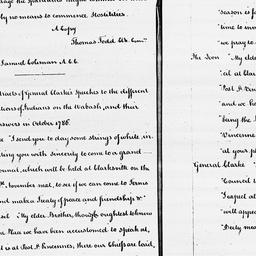 by no means to commence Hostilities.
A Copy
Thomas Todd
Samuel Coleman A.C.C.
Extracts of General Clarke's Speeches to the different
Nations of Indians on the Wabash, and their
answers in October 1786.
"I send you to day some strings of white, in-
viting you with sincerity to come to a grand
Council, which will be held at Clarksville on the
November next, to see if we can come to terms
and make a Treaty of peace and friendship &c
"My elder Brother, thou oughtest to know
the Place we have been accustomed to speak at,
it is at Post St Vincennes, there our Chiefs are laid,
season is f
time to inv
we pray to
The Iron "My elde
at at Clark
Post St Vin
and we ho
being the
Vincennes
at your pl
General Clarke
Council t
I expect al
will appea
Deity mea